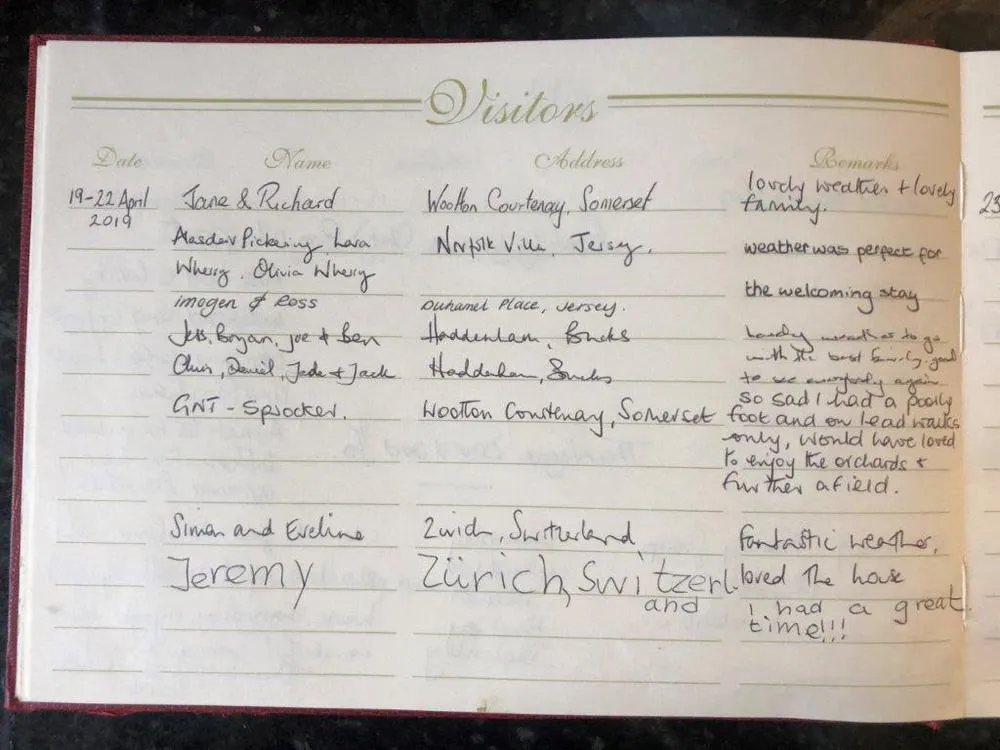 Visitors
Date Name Address Remarks
19-22 April Jane & Richard Wootton Courtenay, Somerset lovely weather + lovely
2019 family.
Alasdair Pickering, Lara Norfolk Villa, Jersey. weather was perfect for
Wherry, Olivia Wherry
the welcoming stay
imogen & Ross Duhamel Place, Jersey.
Jess, Bryan, Joe & Ben Haddenham, Bucks Lovely weather to go
with the best family. good
Chris, Daniel, Jade & Jack Haddenham, Bucks to see everybody again
GNT - Sprocker. Wootton Courtenay, Somerset so sad I had a poorly
foot and on lead walks
only, would have loved
to enjoy the orchards +
further afield.
Simon and Eveline Zurich, Switzerland fantastic weather,
Jeremy Zürich, Switzerl loved the house
and I had a great
time!!!
23